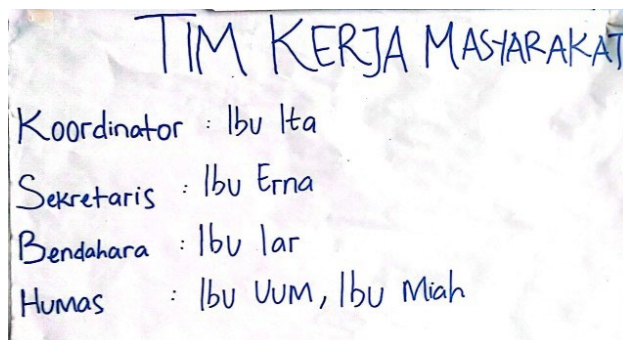 TIM KERJA MASYARAKAT
Koordinator : Ibu Ita
Sekretaris : Ibu Erna
Bendahara : Ibu Iar
Humas : Ibu UUM, Ibu Miah